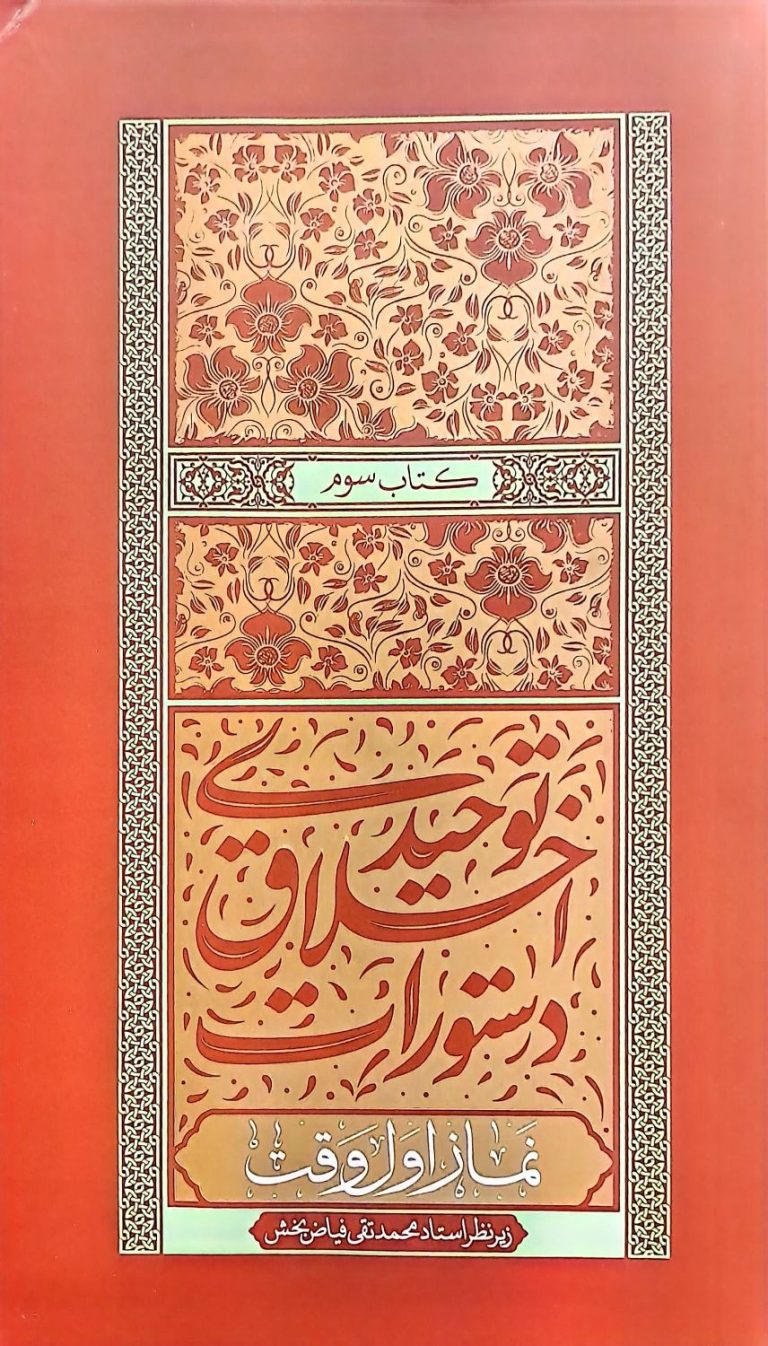 کتاب سوم
توحیدی
اخلاق
دستورات
نماز اول وقت
زیر نظر استاد محمد تقی فیاض بخش